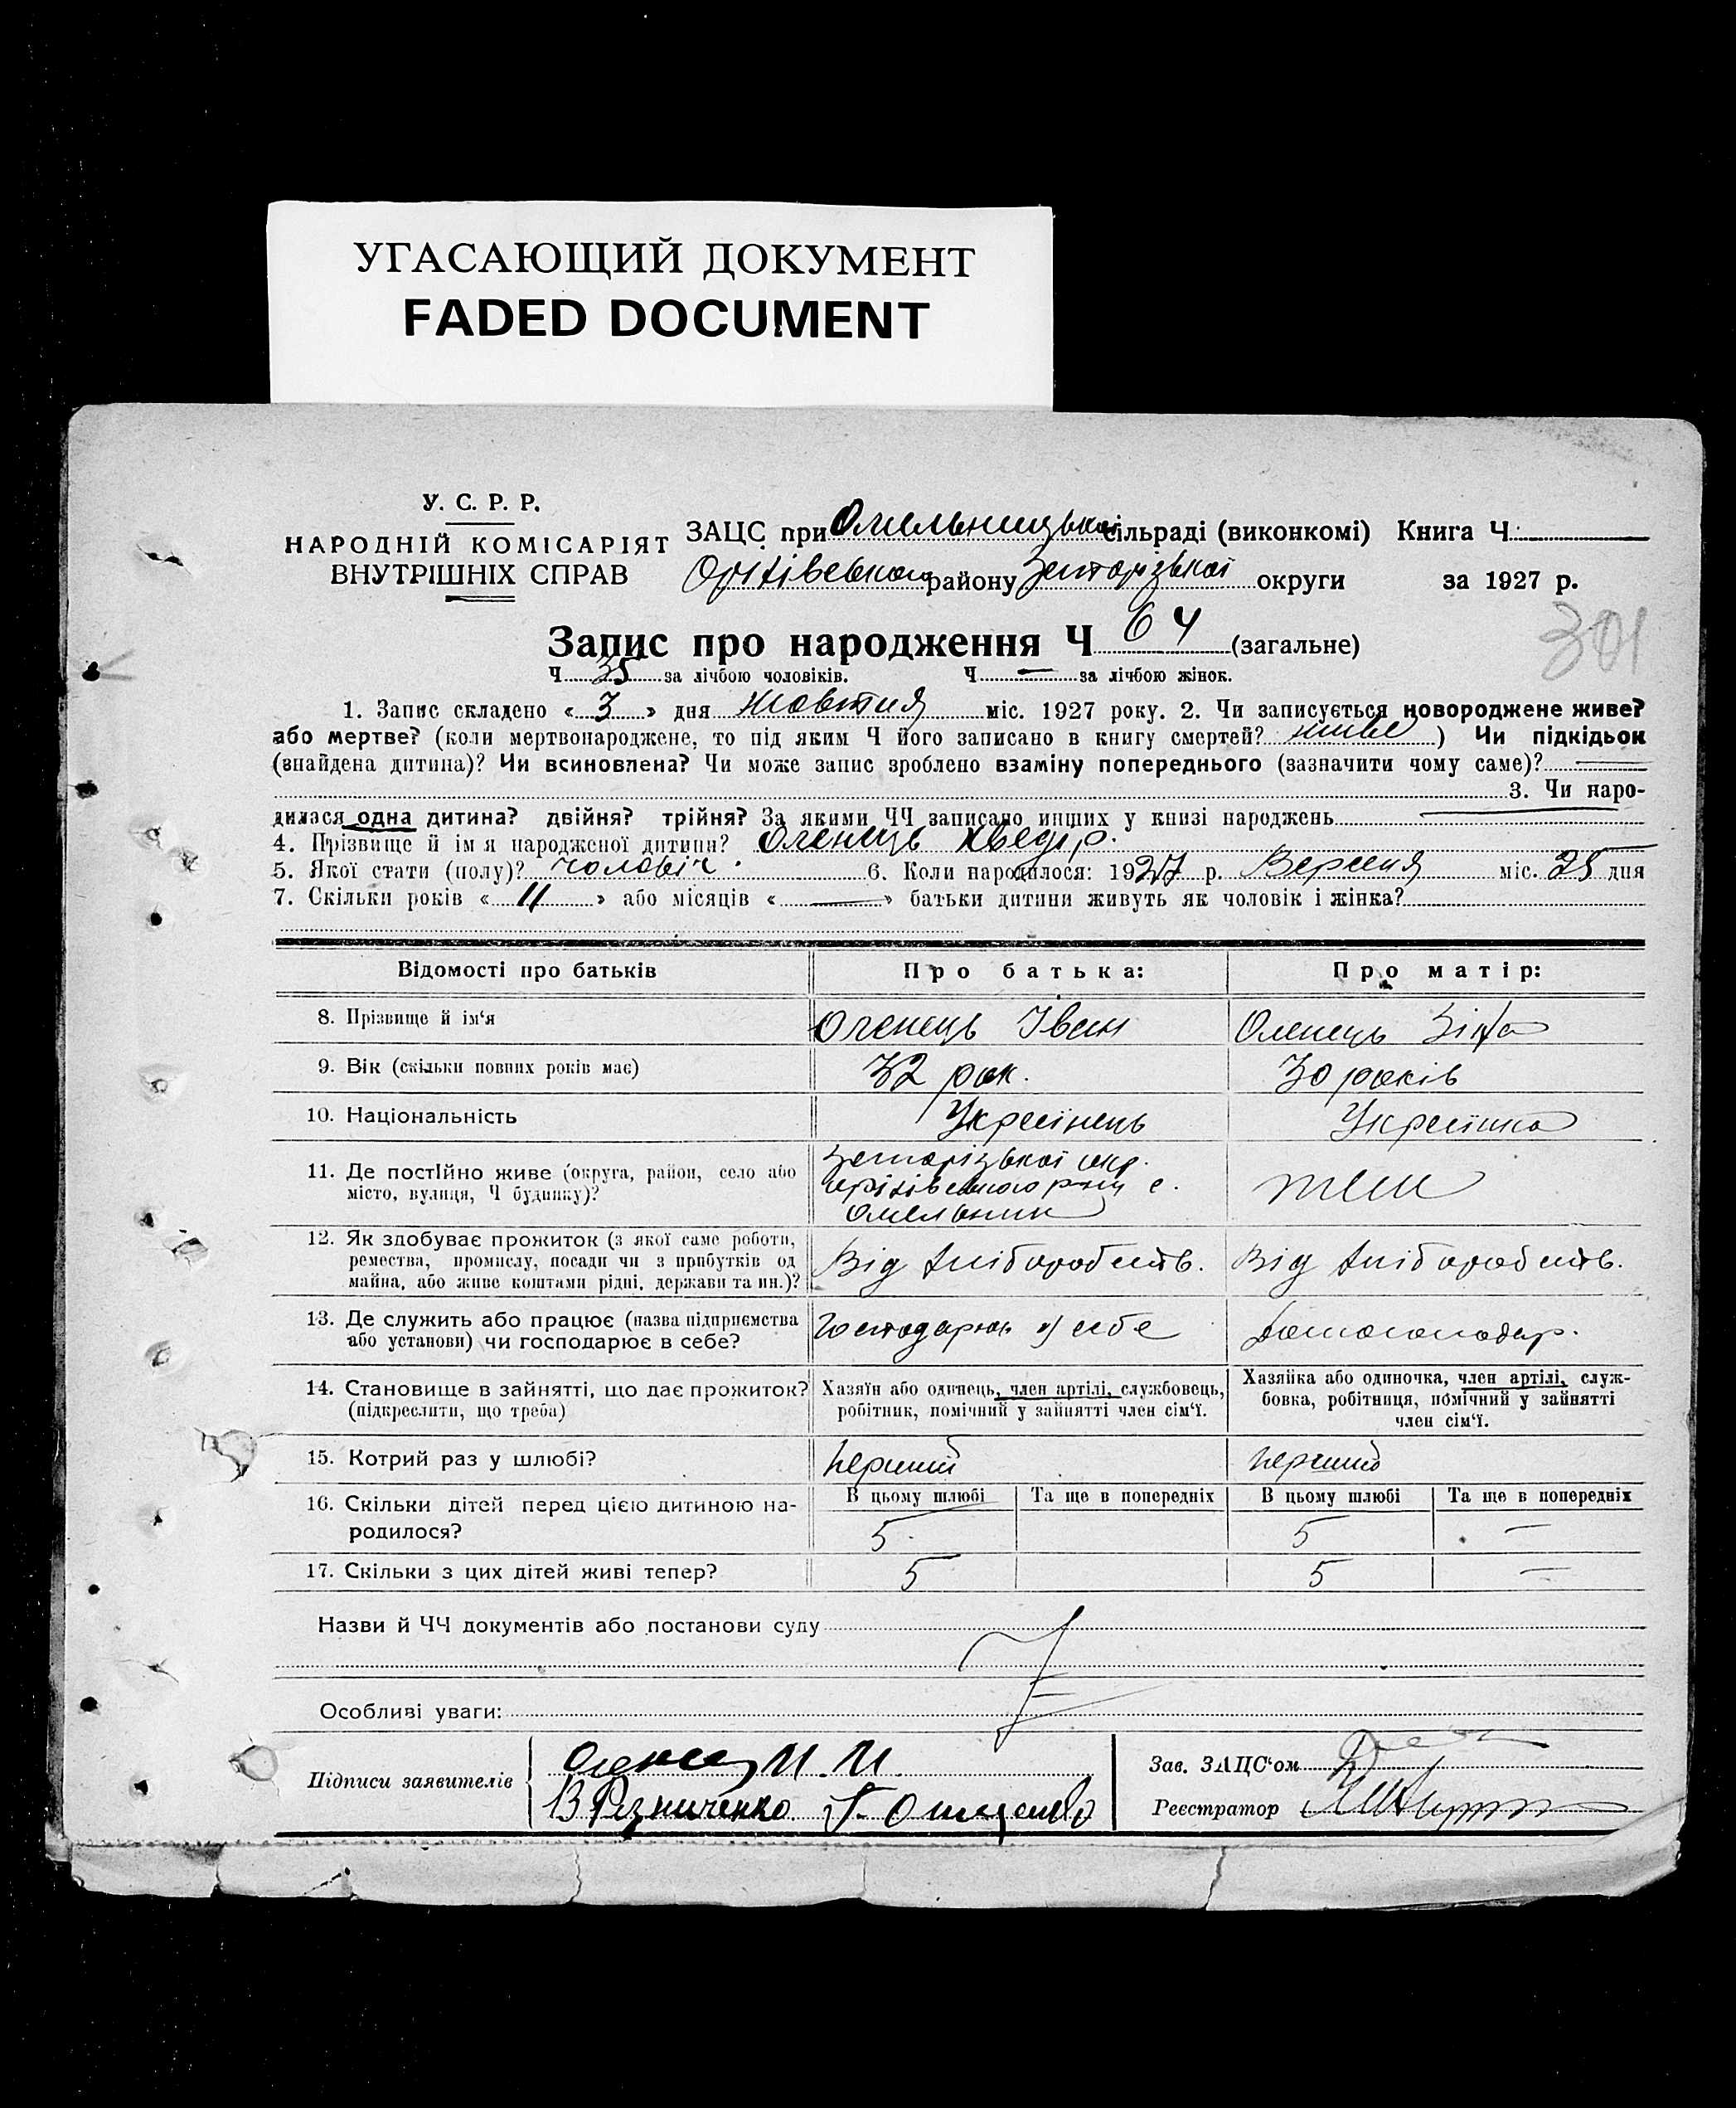 УГАСАЮЩИЙ ДОКУМЕНТ
FADED DOCUMENT
У. С. Р. Р.
НАРОДНІЙ КОМІСАРІЯТ
ВНУТРІШНІХ СПРАВ
ЗАЦС при Омельницькій сільраді (виконкомі) Книга Ч.
Оріхівського району Запорізької округи за 1927 р.
301
Запис про народження Ч 64 (загальне)
Ч 35 за лічбою чоловіків. Ч — за лічбою жінок.
1. Запис складено « 3 » дня Жовтня міс. 1927 року. 2. Чи записується новороджене живе?
або мертве? (коли мертвонароджене, то під яким Ч його записано в книгу смертей? живе ) Чи підкідьок
(знайдена дитина)? Чи всиновлена? Чи може запис зроблено взаміну попереднього (зазначити чому саме)? —
3. Чи наро-
дилася одна дитина? двійня? трійня? За якими ЧЧ записано инших у книзі народжень —
4. Прізвище й ім'я народженої дитини? Оленець Хведір.
5. Якої стати (полу)? чоловіч. 6. Коли народилося: 1927 р. Вересня міс. 25 дня
7. Скільки років « 11 » або місяців « — » батьки дитини живуть як чоловік і жінка?
Відомості про батьків Про батька: Про матір:
8. Прізвище й ім'я Оленець Іван Оленець Зіна
9. Вік (скільки повних років має) 32 рок. 30 років
10. Національність Українець Українка
11. Де постійно живе (округа, район, село або
місто, вулиця, Ч будинку)?
Запорізької окр.
Оріхівського р-ну с.
Омельник
там
12. Як здобуває прожиток (з якої саме роботи,
ремества, промислу, посади чи з прибутків од
майна, або живе коштами рідні, держави та ин.)?
Від хліборобств. Від хліборобств.
13. Де служить або працює (назва підприємства
або установи) чи господарює в себе?
Господарює у себе Домогосподар.
14. Становище в зайнятті, що дає прожиток?
(підкреслити, що треба)
Хазяїн або одинець, член артілі, службовець,
робітник, помічний у зайнятті член сім'ї.
Хазяйка або одиночка, член артілі, служ-
бовка, робітниця, помічний у зайнятті
член сім'ї.
15. Котрий раз у шлюбі? перший перший
16. Скільки дітей перед цією дитиною на-
родилося?
В цьому шлюбі Та ще в попередніх В цьому шлюбі Та ще в попередніх
5 5 —
17. Скільки з цих дітей живі тепер? 5 5 —
Назви й ЧЧ документів або постанови суду
Особливі уваги:
Підписи заявителів
Оленець И. И.
В Різниченко
Зав. ЗАЦС'ом
Реєстратор